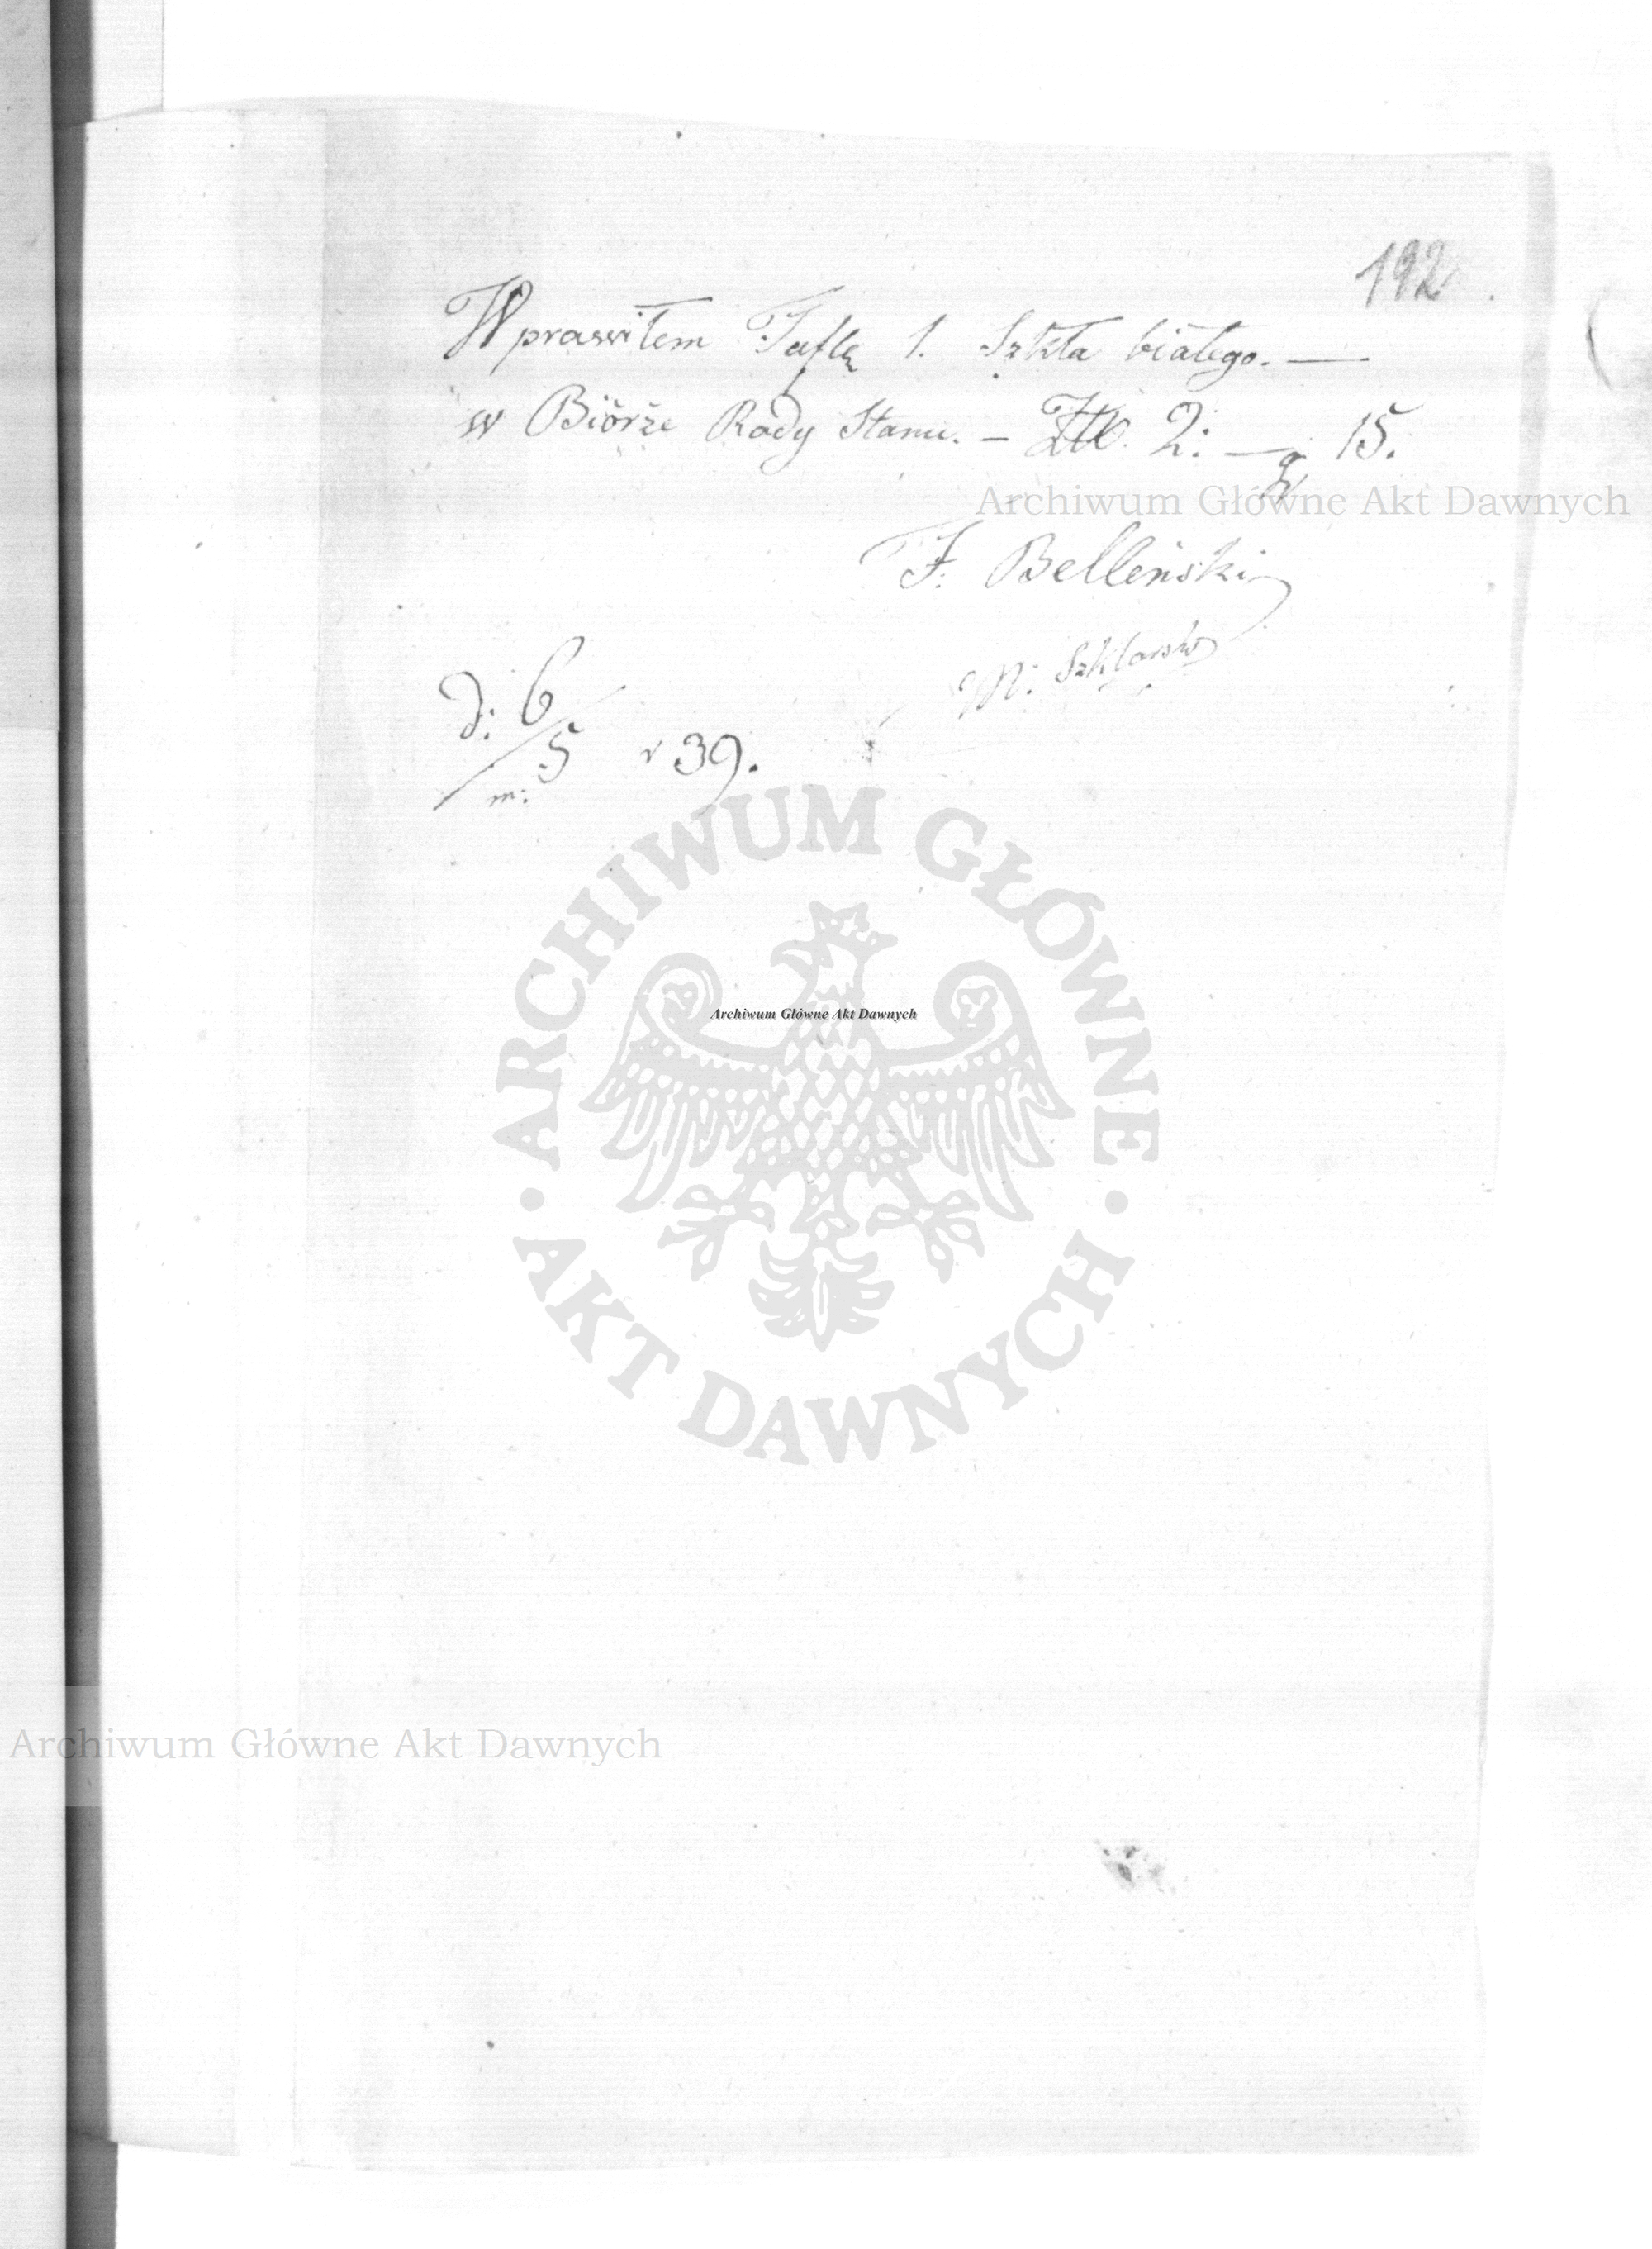 192
Wprawiłem Taflę 1. Szkła białego. —
w Biórże Rady Stanu. — Złł. 2: — gr 15.
Archiwum Główne Akt Dawnych
F. Belleński
M: Szklarski
d: 6/5 r 39.
m:
ARCHIWUM GŁÓWNE
Archiwum Główne Akt Dawnych
AKT DAWNYCH
Archiwum Główne Akt Dawnych